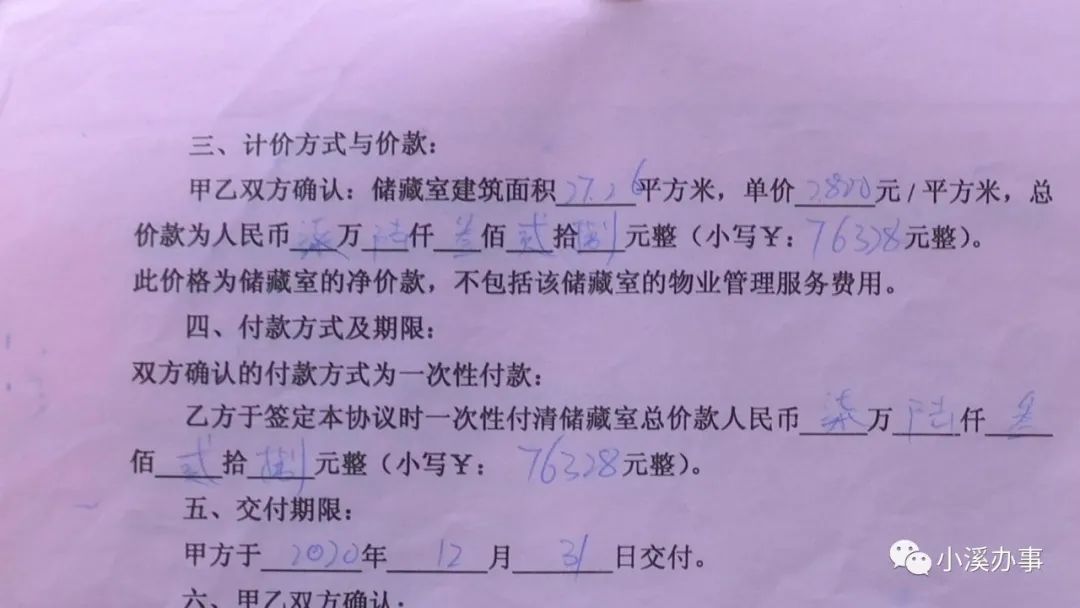 三、计价方式与价款：
甲乙双方确认：储藏室建筑面积27.26平方米，单价2800元/平方米，总
价款为人民币柒万陆仟叁佰贰拾捌元整（小写￥：76328元整）。
此价格为储藏室的净价款，不包括该储藏室的物业管理服务费用。
四、付款方式及期限：
双方确认的付款方式为一次性付款：
乙方于签定本协议时一次性付清储藏室总价款人民币柒万陆仟叁
佰贰拾捌元整（小写￥：76328元整）。
五、交付期限：
甲方于2020年12月31日交付。
六、甲乙双方确认：
小溪办事